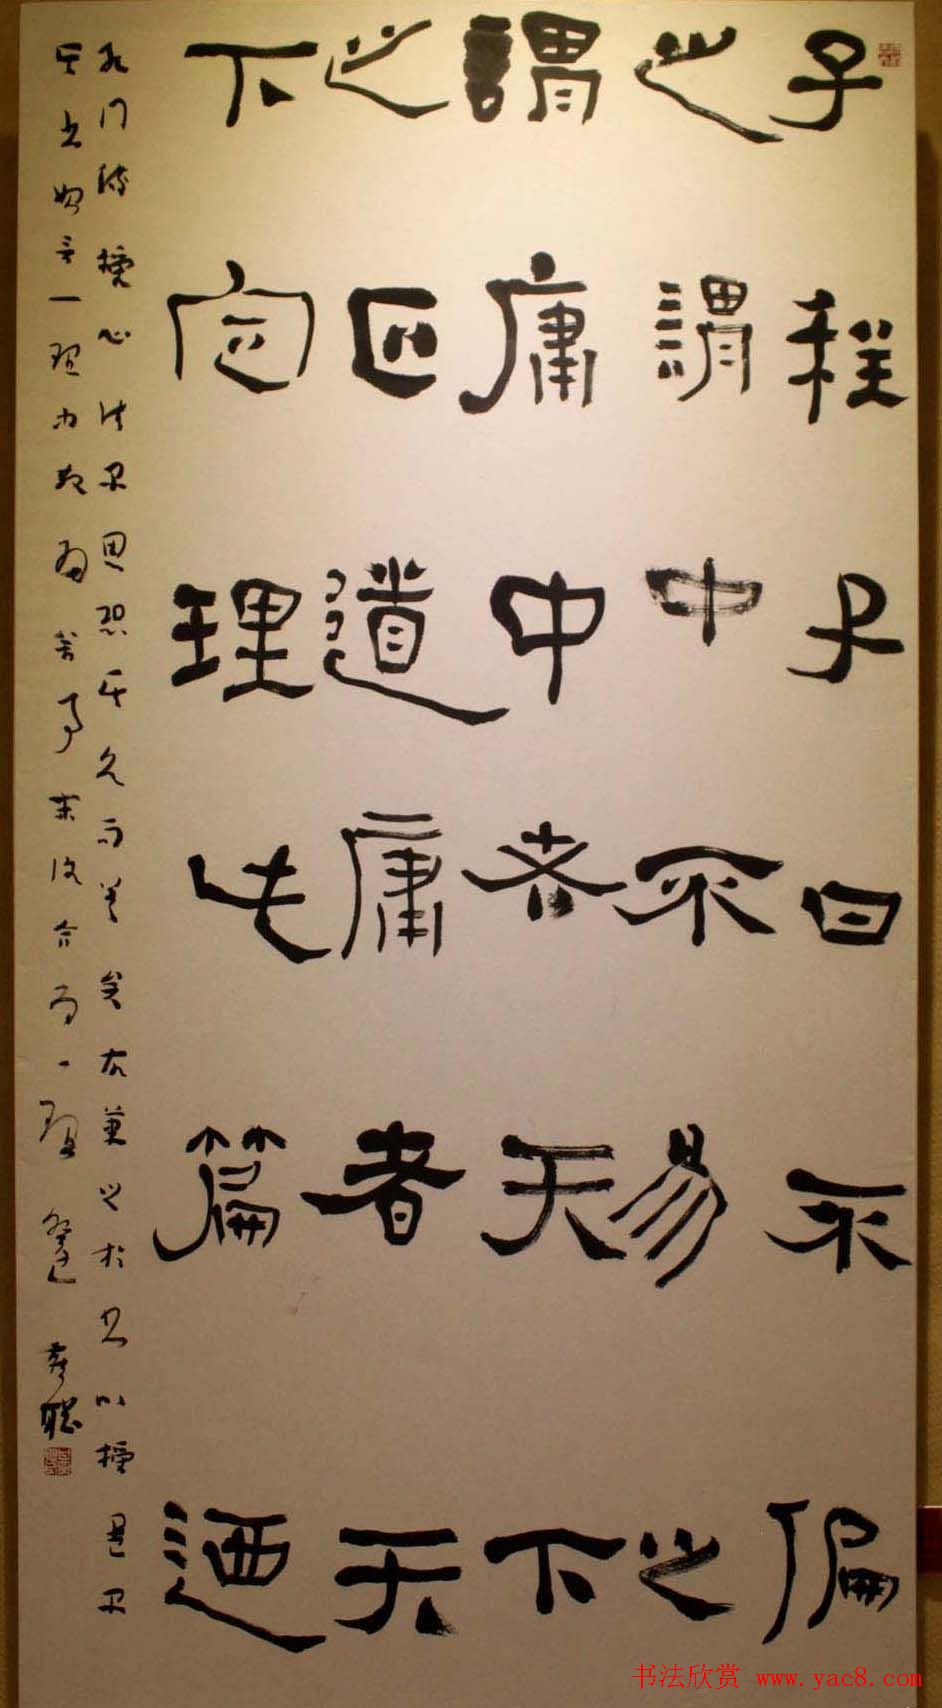 子程子曰不偏
之謂中不易之
謂庸中者天下
之正道庸者天
下定理此篇迺
孔门傳授心法子思恐其久而差矣故筆之於書以授孟子
其書始言一理中散為萬事末復合為一理癸巳
书法欣赏 www.yac8.com